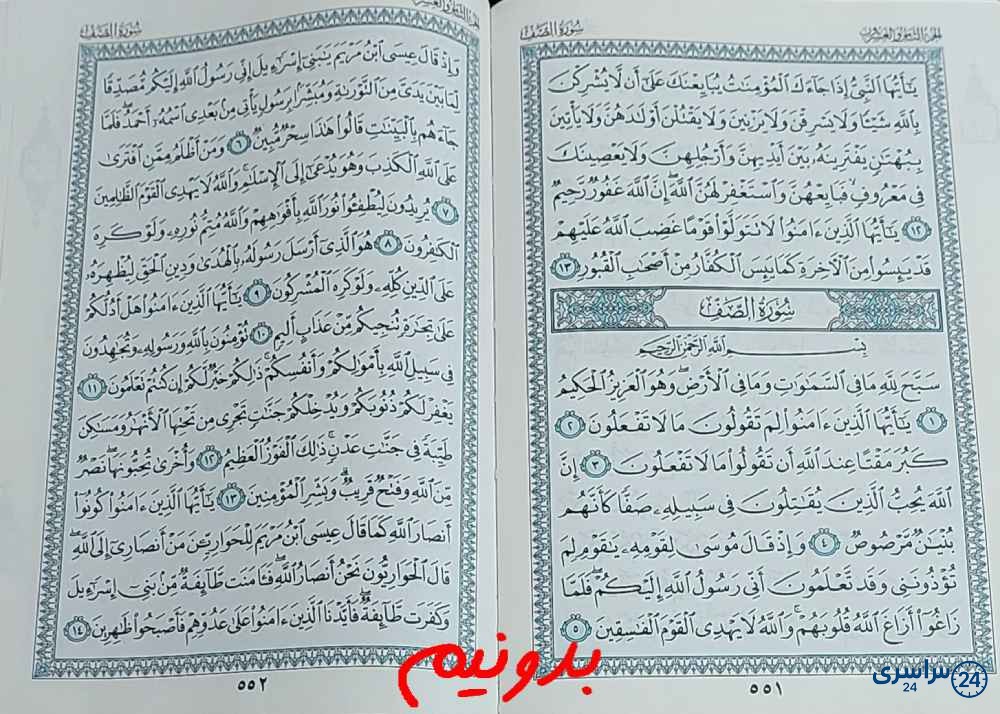 سُورَةُ الصَّفِّ
يَـٰٓأَيُّهَا ٱلنَّبِىُّ إِذَا جَآءَكَ ٱلْمُؤْمِنَـٰتُ يُبَايِعْنَكَ عَلَىٰٓ أَن لَّا يُشْرِكْنَ
بِٱللَّهِ شَيْـًٔا وَلَا يَسْرِقْنَ وَلَا يَزْنِينَ وَلَا يَقْتُلْنَ أَوْلَـٰدَهُنَّ وَلَا يَأْتِينَ
بِبُهْتَـٰنٍ يَفْتَرِينَهُۥ بَيْنَ أَيْدِيهِنَّ وَأَرْجُلِهِنَّ وَلَا يَعْصِينَكَ
فِى مَعْرُوفٍ فَبَايِعْهُنَّ وَٱسْتَغْفِرْ لَهُنَّ ٱللَّهَ إِنَّ ٱللَّهَ غَفُورٌ رَّحِيمٌ
١٢ يَـٰٓأَيُّهَا ٱلَّذِينَ ءَامَنُوا۟ لَا تَتَوَلَّوْا۟ قَوْمًا غَضِبَ ٱللَّهُ عَلَيْهِمْ
قَدْ يَئِسُوا۟ مِنَ ٱلْـَٔاخِرَةِ كَمَا يَئِسَ ٱلْكُفَّارُ مِنْ أَصْحَـٰبِ ٱلْقُبُورِ ١٣
سُورَةُ الصَّفِّ
بِسْمِ ٱللَّهِ ٱلرَّحْمَـٰنِ ٱلرَّحِيمِ
سَبَّحَ لِلَّهِ مَا فِى ٱلسَّمَـٰوَٰتِ وَمَا فِى ٱلْأَرْضِ وَهُوَ ٱلْعَزِيزُ ٱلْحَكِيمُ
١ يَـٰٓأَيُّهَا ٱلَّذِينَ ءَامَنُوا۟ لِمَ تَقُولُونَ مَا لَا تَفْعَلُونَ ٢
كَبُرَ مَقْتًا عِندَ ٱللَّهِ أَن تَقُولُوا۟ مَا لَا تَفْعَلُونَ ٣ إِنَّ
ٱللَّهَ يُحِبُّ ٱلَّذِينَ يُقَـٰتِلُونَ فِى سَبِيلِهِۦ صَفًّا كَأَنَّهُم
بُنْيَـٰنٌ مَّرْصُوصٌ ٤ وَإِذْ قَالَ مُوسَىٰ لِقَوْمِهِۦ يَـٰقَوْمِ لِمَ
تُؤْذُونَنِى وَقَد تَّعْلَمُونَ أَنِّى رَسُولُ ٱللَّهِ إِلَيْكُمْ فَلَمَّا
زَاغُوٓا۟ أَزَاغَ ٱللَّهُ قُلُوبَهُمْ وَٱللَّهُ لَا يَهْدِى ٱلْقَوْمَ ٱلْفَـٰسِقِينَ ٥
٥٥١
سُورَةُ الصَّفِّ
وَإِذْ قَالَ عِيسَى ٱبْنُ مَرْيَمَ يَـٰبَنِىٓ إِسْرَٰٓءِيلَ إِنِّى رَسُولُ ٱللَّهِ إِلَيْكُم مُّصَدِّقًا
لِّمَا بَيْنَ يَدَىَّ مِنَ ٱلتَّوْرَىٰةِ وَمُبَشِّرًۢا بِرَسُولٍ يَأْتِى مِنۢ بَعْدِى ٱسْمُهُۥٓ أَحْمَدُ فَلَمَّا
جَآءَهُم بِٱلْبَيِّنَـٰتِ قَالُوا۟ هَـٰذَا سِحْرٌ مُّبِينٌ ٦ وَمَنْ أَظْلَمُ مِمَّنِ ٱفْتَرَىٰ
عَلَى ٱللَّهِ ٱلْكَذِبَ وَهُوَ يُدْعَىٰٓ إِلَى ٱلْإِسْلَـٰمِ وَٱللَّهُ لَا يَهْدِى ٱلْقَوْمَ ٱلظَّـٰلِمِينَ
٧ يُرِيدُونَ لِيُطْفِـُٔوا۟ نُورَ ٱللَّهِ بِأَفْوَٰهِهِمْ وَٱللَّهُ مُتِمُّ نُورِهِۦ وَلَوْ كَرِهَ
ٱلْكَـٰفِرُونَ ٨ هُوَ ٱلَّذِىٓ أَرْسَلَ رَسُولَهُۥ بِٱلْهُدَىٰ وَدِينِ ٱلْحَقِّ لِيُظْهِرَهُۥ
عَلَى ٱلدِّينِ كُلِّهِۦ وَلَوْ كَرِهَ ٱلْمُشْرِكُونَ ٩ يَـٰٓأَيُّهَا ٱلَّذِينَ ءَامَنُوا۟ هَلْ أَدُلُّكُمْ
عَلَىٰ تِجَـٰرَةٍ تُنجِيكُم مِّنْ عَذَابٍ أَلِيمٍ ١٠ تُؤْمِنُونَ بِٱللَّهِ وَرَسُولِهِۦ وَتُجَـٰهِدُونَ
فِى سَبِيلِ ٱللَّهِ بِأَمْوَٰلِكُمْ وَأَنفُسِكُمْ ذَٰلِكُمْ خَيْرٌ لَّكُمْ إِن كُنتُمْ تَعْلَمُونَ ١١
يَغْفِرْ لَكُمْ ذُنُوبَكُمْ وَيُدْخِلْكُمْ جَنَّـٰتٍ تَجْرِى مِن تَحْتِهَا ٱلْأَنْهَـٰرُ وَمَسَـٰكِنَ
طَيِّبَةً فِى جَنَّـٰتِ عَدْنٍ ذَٰلِكَ ٱلْفَوْزُ ٱلْعَظِيمُ ١٢ وَأُخْرَىٰ تُحِبُّونَهَا نَصْرٌ
مِّنَ ٱللَّهِ وَفَتْحٌ قَرِيبٌ وَبَشِّرِ ٱلْمُؤْمِنِينَ ١٣ يَـٰٓأَيُّهَا ٱلَّذِينَ ءَامَنُوا۟ كُونُوٓا۟
أَنصَارَ ٱللَّهِ كَمَا قَالَ عِيسَى ٱبْنُ مَرْيَمَ لِلْحَوَارِيِّـۧنَ مَنْ أَنصَارِىٓ إِلَى ٱللَّهِ
قَالَ ٱلْحَوَارِيُّونَ نَحْنُ أَنصَارُ ٱللَّهِ فَـَٔامَنَت طَّآئِفَةٌ مِّنۢ بَنِىٓ إِسْرَٰٓءِيلَ
وَكَفَرَت طَّآئِفَةٌ فَأَيَّدْنَا ٱلَّذِينَ ءَامَنُوا۟ عَلَىٰ عَدُوِّهِمْ فَأَصْبَحُوا۟ ظَـٰهِرِينَ ١٤
٥٥٢
بدونیم
سراسری 24
24